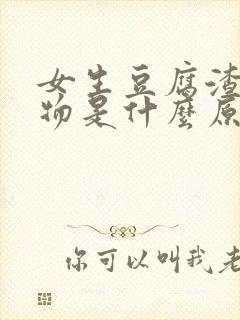 女生豆腐渣
物是什麼原
你可以叫我老